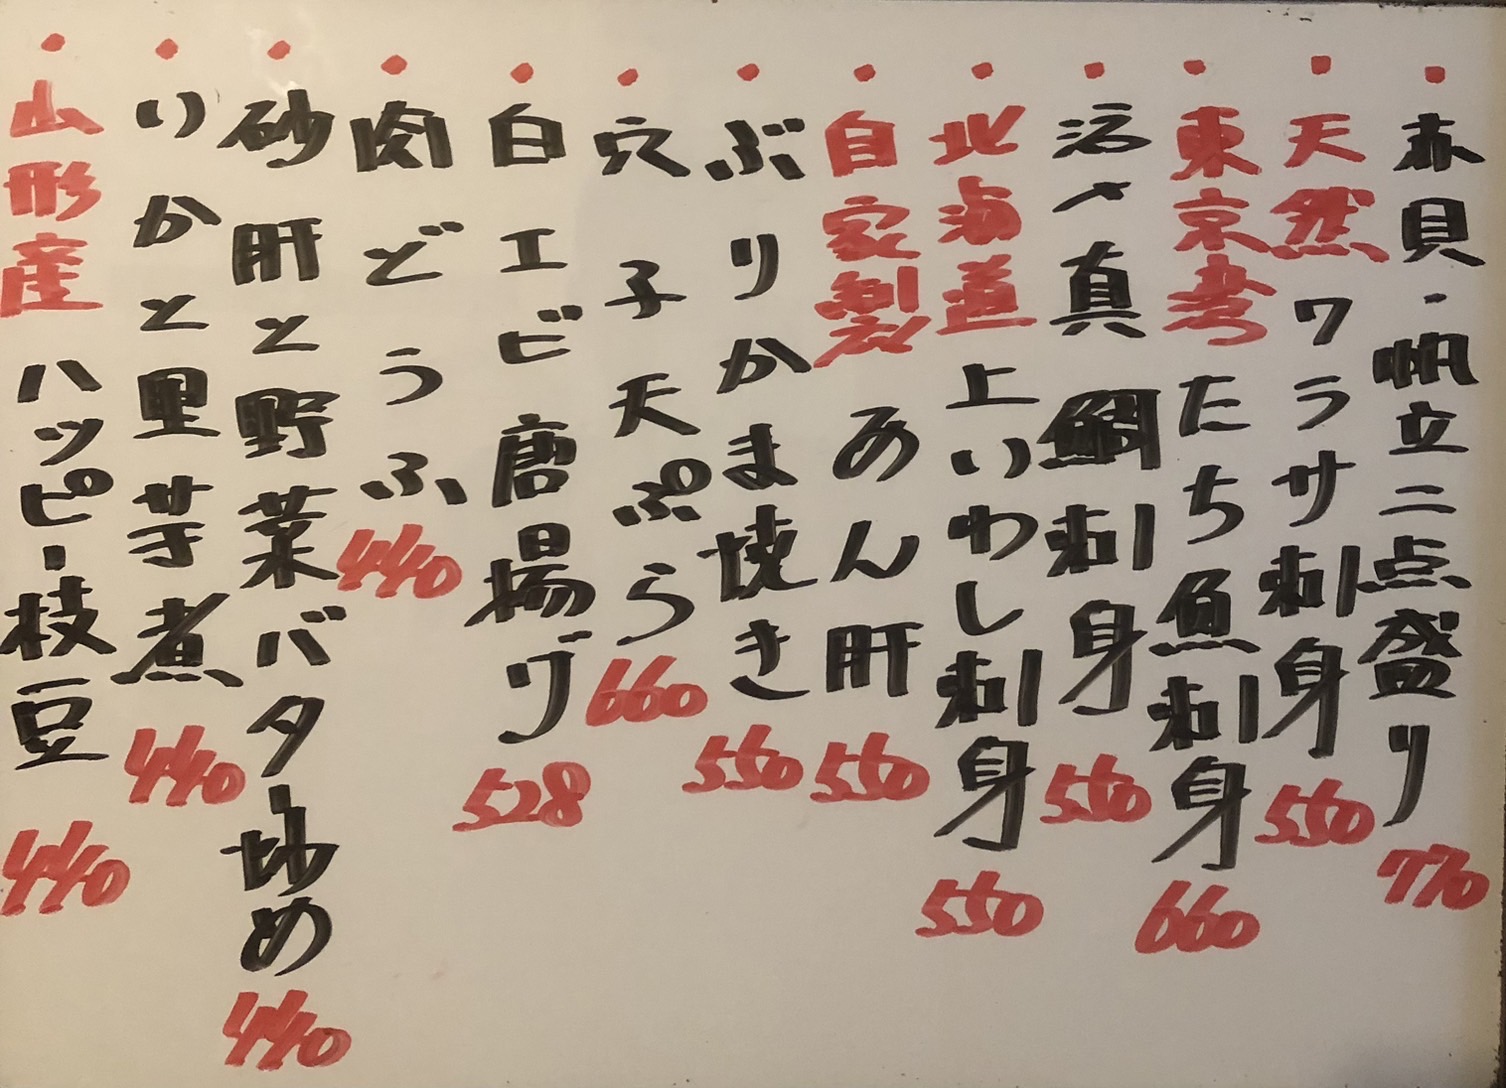 ・赤貝・帆立二点盛り 770
・天然ワラサ刺身 550
・東京湾たち魚刺身 660
・活〆真鯛刺身 550
・北海道上いわし刺身 550
・自家製あん肝 550
・ぶりかま焼き 550
・穴子天ぷら 660
・白エビ唐揚げ 528
・肉どうふ 440
・砂肝と野菜バター炒め 440
・いかと里芋煮 440
・山形産ハッピー枝豆 440